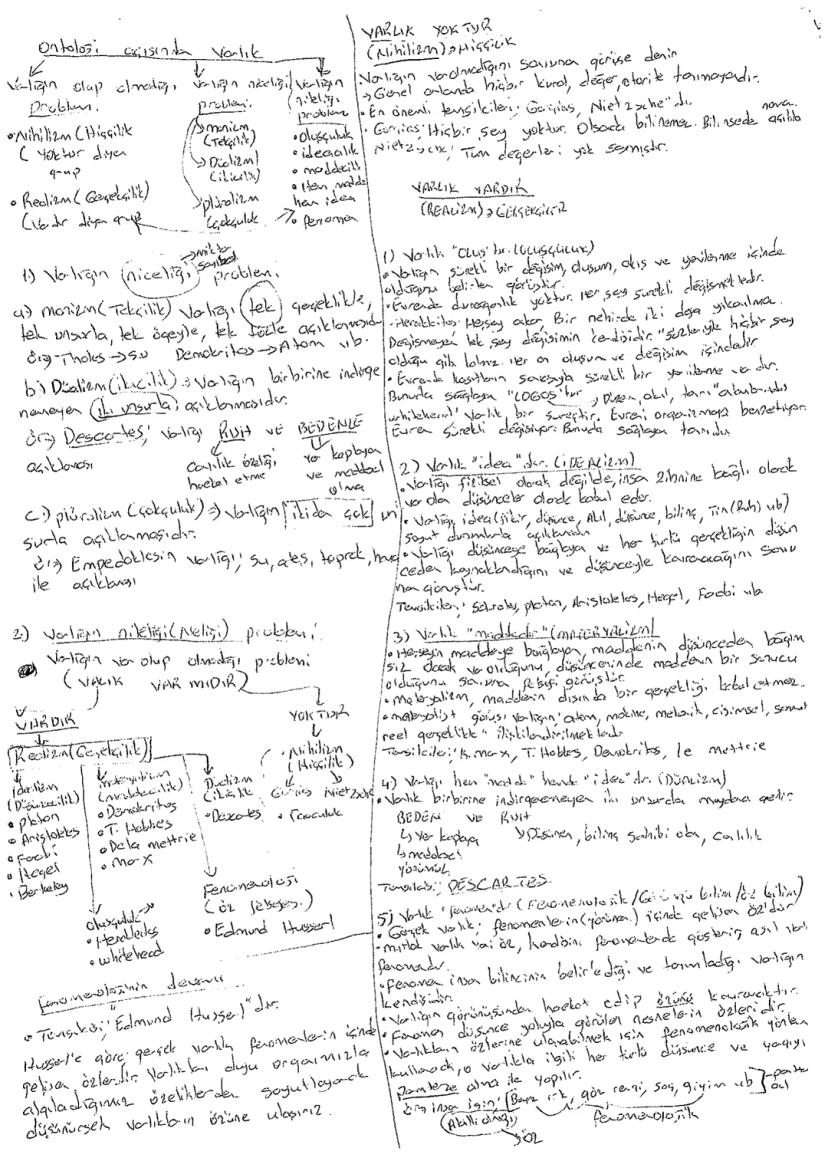 Ontoloji açısından Varlık
Varlığın olup olmadığı problemi.
Varlığın niceliği problemi
Varlığın niteliği problemi
• Nihilizm (Hiççilik
( Yoktur diyen
grup
• Realizm (Gerçekçilik)
(Vardır diyen grup
→ monizm
(Tekçilik)
→ Düalizm
(ikicilik)
→ plüralizm
Çokçuluk
• oluşçuluk
• ideacılık
• maddecilik
• Hem madde
hem idea
• fenomen
1) Varlığın niceliği problemi.
a) monizm (Tekçilik) Varlığı tek gerçeklikle,
tek unsurla, tek öğeyle, tek tözle açıklanması
ör:) Thales → su Demokritos → Atom vb.
b) Düalizm (ikicilik) → Varlığın birbirine indirge
nemeyen iki unsurla açıklanmasıdır.
ör:) Descartes; varlığı RUH VE BEDENLE
açıklaması
Canlılık özelliği
hareket etme
Yer kaplayan
ve maddesel
olma
c) plüralizm (çokçuluk) → Varlığın ikiden çok un
surla açıklanmasıdır.
ör:) Empedoklesin varlığı; su, ateş, toprak, hava
ile açıklaması
2) Varlığın niteliği (Neliği) problemi
Varlığın var olup olmadığı problemi
(VARLIK VAR MIDIR)
VARDIR
YOKTUR
Realizm (Gerçekçilik)
• Nihilizm
(Hiççilik)
Gorgias Nietzsche
• Taoculuk
idealizm
(Düşüncecilik)
• Platon
• Aristoteles
• Farabi
• Hegel
• Berkeley
materyalizm
(maddecilik)
• Demokritos
• T. Hobbes
• De la mettrie
• marx
Düalizm
(ikicilik
• Descartes
oluşçuluk
• Herakleitos
• whitehead
Fenomenoloji
(öz felsefesi)
• Edmund Husserl
Fenomenolojinin devamı
• Temsilcisi; "Edmund Husserl" dır.
Husserl'e göre; gerçek varlık fenomenlerin içinde
gelişen özlerdir. Varlıkları duyu organımızla
algıladığımız özelliklerden soyutlayarak
düşünürsek varlıkların özüne ulaşırız.
VARLIK YOKTUR
(Nihilizm) → Hiççilik
• Varlığın varolmadığını savunan görüşe denir
→ Genel anlamda hiçbir kural, değer, otorite tanımayandır.
• En önemli temsilcileri; Gorgias, Nietzsche'dir.
• Gorgias; Hiçbir şey yoktur. Olsada bilinemez. Bilinsede
Nietzsche; Tüm değerleri yok saymıştır.
VARLIK VARDIR
(REALİZM) → GERÇEKÇİLİK
1) Varlık "Oluş" tur. (OLUŞÇULUK)
• Varlığın sürekli bir değişim, oluşum, akış ve yenilenme içinde
olduğunu belirten görüştür.
• Evrende durağanlık yoktur. Her şey sürekli değişmektedir.
• Herakleitos: Herşey akar, Bir nehirde iki defa yıkanılmaz.
Değişmeyen tek şey değişimin kendisidir. "sözleriyle hiçbir şey
olduğu gibi kalmaz. Her an oluşum ve değişim içindedir
• Evrende karşıtların savaşıyla sürekli bir yenilenme vardır.
Bunuda sağlayan "LOGOS" tur → Düzen, akıl, tanrı
whitehead; Varlık bir süreçtir. Evreni organizmaya benzetiyor.
Evren sürekli değişiyor. Bunuda sağlayan tanrıdır.
2) Varlık "idea" dır. (İDEALİZM)
• Varlığı fiziksel olarak değilde, insan zihnine bağlı olarak
var olan düşünceler olarak kabul eder.
• Varlığı idea (fikir, düşünce, Akıl, düşünce, bilinç, Tin (Ruh) vb)
soyut durumlarla açıklanandır
• Varlığı düşünceye bağlayan ve her türlü gerçekliğin düşün
ceden kaynaklandığını ve düşünceyle kavranacağını savu
nan görüştür.
Temsilcileri; Sokrates, platon, Aristoteles, Hegel, Farabi vb
3) Varlık "maddedir" (MATERYALİZM)
• Herşeyin maddeye bağlayan, maddenin düşünceden bağım
sız olarak var olduğunu, düşüncenin de maddenin bir sonucu
olduğunu savunan felsefi görüştür.
• materyalizm, maddenin dışında bir gerçekliği kabul etmez.
• materyalist görüş; varlığın; atom, makine, mekanik, cisimsel, somut
reel gerçeklikle" ilişkilendirilmektedir.
Temsilcileri; K. marx, T. Hobbes, Demokritos, le mettrie
4) Varlığı hem "madde" hemde "idea" dır. (DÜALİZM)
• Varlık birbirine indirgenemeyen iki unsurdan meydana gelir.
BEDEN VE RUH
↳ yer kaplayan
↳ maddesel
↳ Düşünen, bilinç sahibi olan, canlılık
Temsilcisi; DESCARTES
5) Varlık "fenomendir" (Fenomenolojik / Görüngü bilim / öz bilim)
• Gerçek varlık; fenomenlerin (görünen) içinde gelişen öz'dür
• mutlak varlık yani öz, kendisini fenomenlerde gösteren asıl
fenomendir.
• fenomen insan bilincinin belirlediği ve tanımladığı varlığın
kendisidir.
• Varlığın görünüşünden hareket edip özünü kavramaktır.
• Fenomen düşünce yoluyla görülen nesnelerin özleridir.
• Varlıkların özlerine ulaşabilmek için fenomenolojik yöntem
kullanarak, o varlıkla ilgili her türlü düşünce ve yargıyı
Paranteze alma ile yapılır.
ör: insan için; Beyaz ırk, göz rengi, saç, giyim vb
(Akıllı oluşu)
→ ÖZ
fenomenolojik